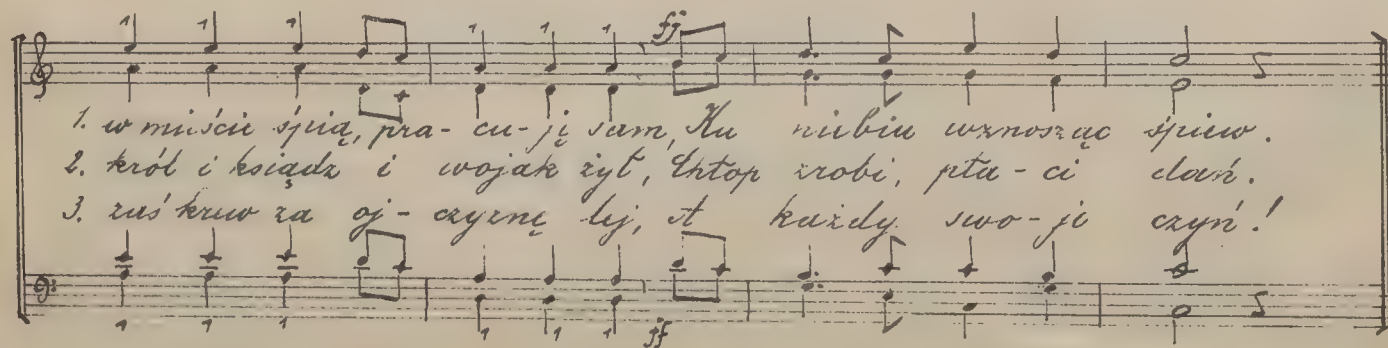 ff
1. w mieście śpią, pra-cu-ję sam, Ku niebiu wznosząc śpiew.
2. król i ksiądz i wojak żył, Chłop zrobi, pła-ci dań.
3. zaś krew za oj-czyznę lej, A każdy swo-je czyń!
ff